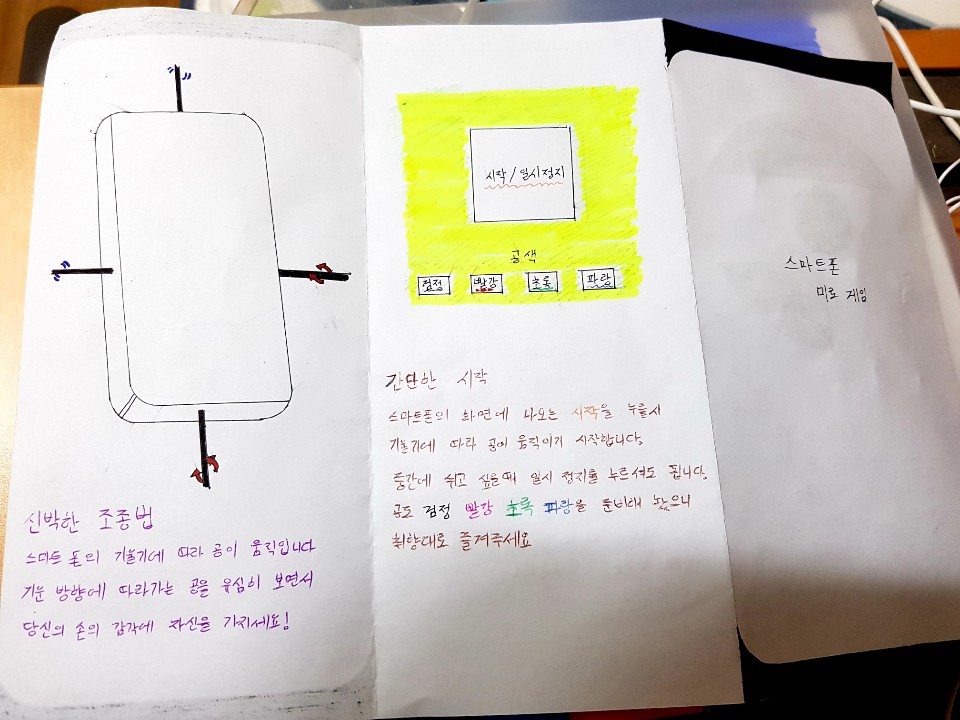 신박한 조종법
스마트 폰의 기울기에 따라 공이 움직입니다
기운 방향에 따라가는 공을 유심히 보면서
당신의 손의 감각에 자신을 가지세요!
시작 / 일시정지
공색
검정 빨강 초록 파랑
간단한 시작
스마트폰의 화면에 나오는 시작을 누를시
기울기에 따라 공이 움직이기 시작합니다.
중간에 쉬고 싶을때 일시 정지를 누르셔도 됩니다.
공도 검정 빨강 초록 파랑을 준비해 놨으니
취향대로 즐겨주세요
스마트폰
미로 게임